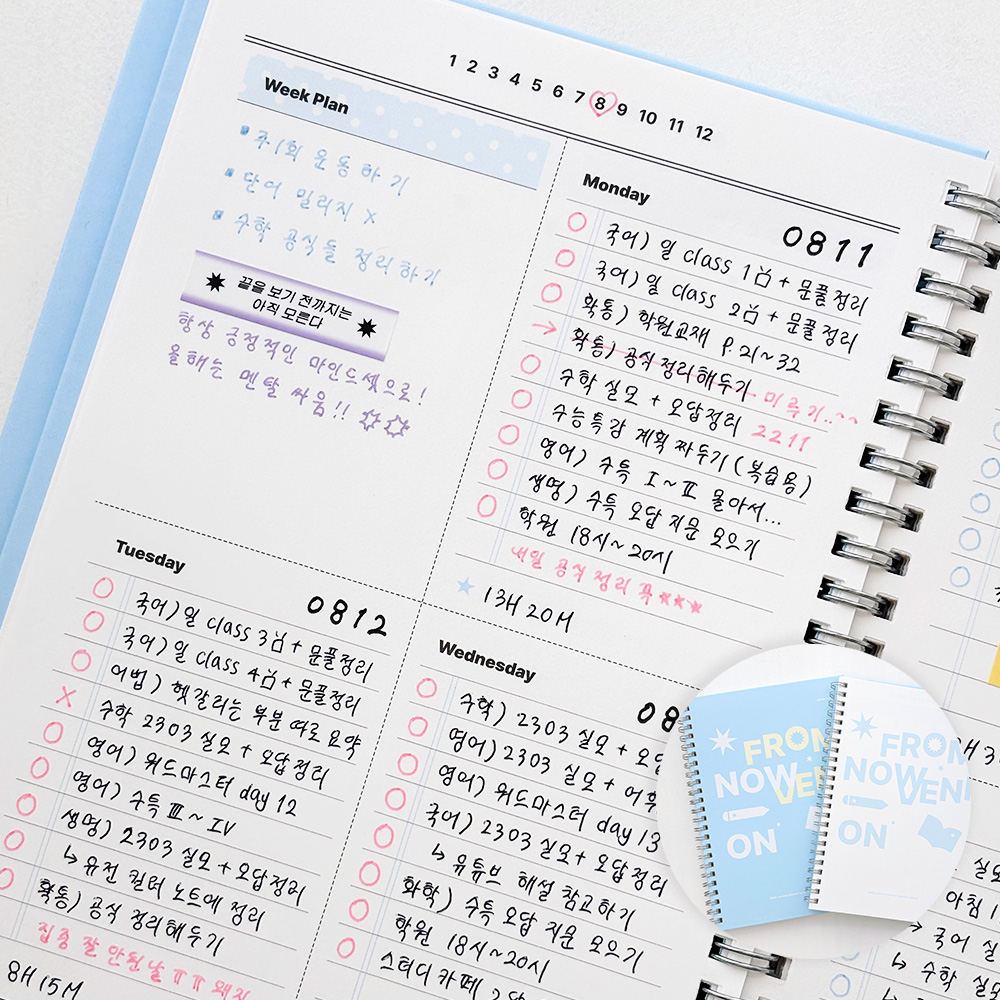 1 2 3 4 5 6 7 8 9 10 11 12
Week Plan
주1회 운동하기
단어 밀리지 X
수학 공식들 정리하기
끝을 보기 전까지는
아직 모른다
항상 긍정적인 마인드셋으로!
올해는 멘탈 싸움!!
Monday
0811
국어) 일 class 1강 + 문풀정리
국어) 일 class 2강 + 문풀정리
확통) 학원교재 p.21~32
→ 확통) 공식정리해두기 미루기..~~
수학 실모 + 오답정리 2211
수능특강 계획 짜두기(복습용)
영어) 수특 I~II 몰아서...
생명) 수특 오답 지문 모으기
학원 18시~20시
내일 공식정리 꼭★★★
★ 13H 20M
Tuesday
0812
국어)일 class 3강 + 문풀정리
국어)일 class 4강 + 문풀정리
어법) 헷갈리는 부분 따로 요약
X 수학 2303 실모 + 오답정리
영어) 워드마스터 day 12
영어) 수특 III ~ IV
생명) 2303 실모 + 오답정리
↳ 유전 킬러 노트에 정리
확통) 공식 정리해두기
집중 잘 안된날 ㅠㅠ
8H 15M
Wednesday
08
수학) 2303 실모 +
영어) 2303 실모 +
영어) 워드마스터 day 13
국어) 2303 실모 + 오답정리
↳ 유튜브 해설 참고하기
화학) 수특 오답 지문 모으기
학원 18시~20시
스터디카페
실모
아침
→ 국어
↳ 수학
FROM
NOWEN
ON
FROM
NOWEN
ON